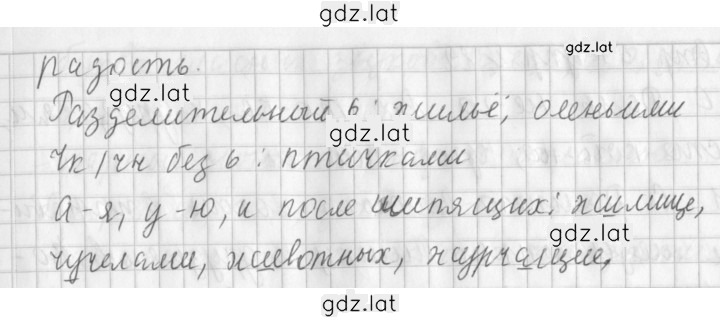 gdz.lat
gdz.lat
радость.
gdz.lat
Разделительный ь: жильё, оленьими
gdz.lat
Чк/чн без ь: птичками
а-я, у-ю, и после шипящих: жилище,
gdz.lat
чучелами, животных, журчащие,
gdz.lat